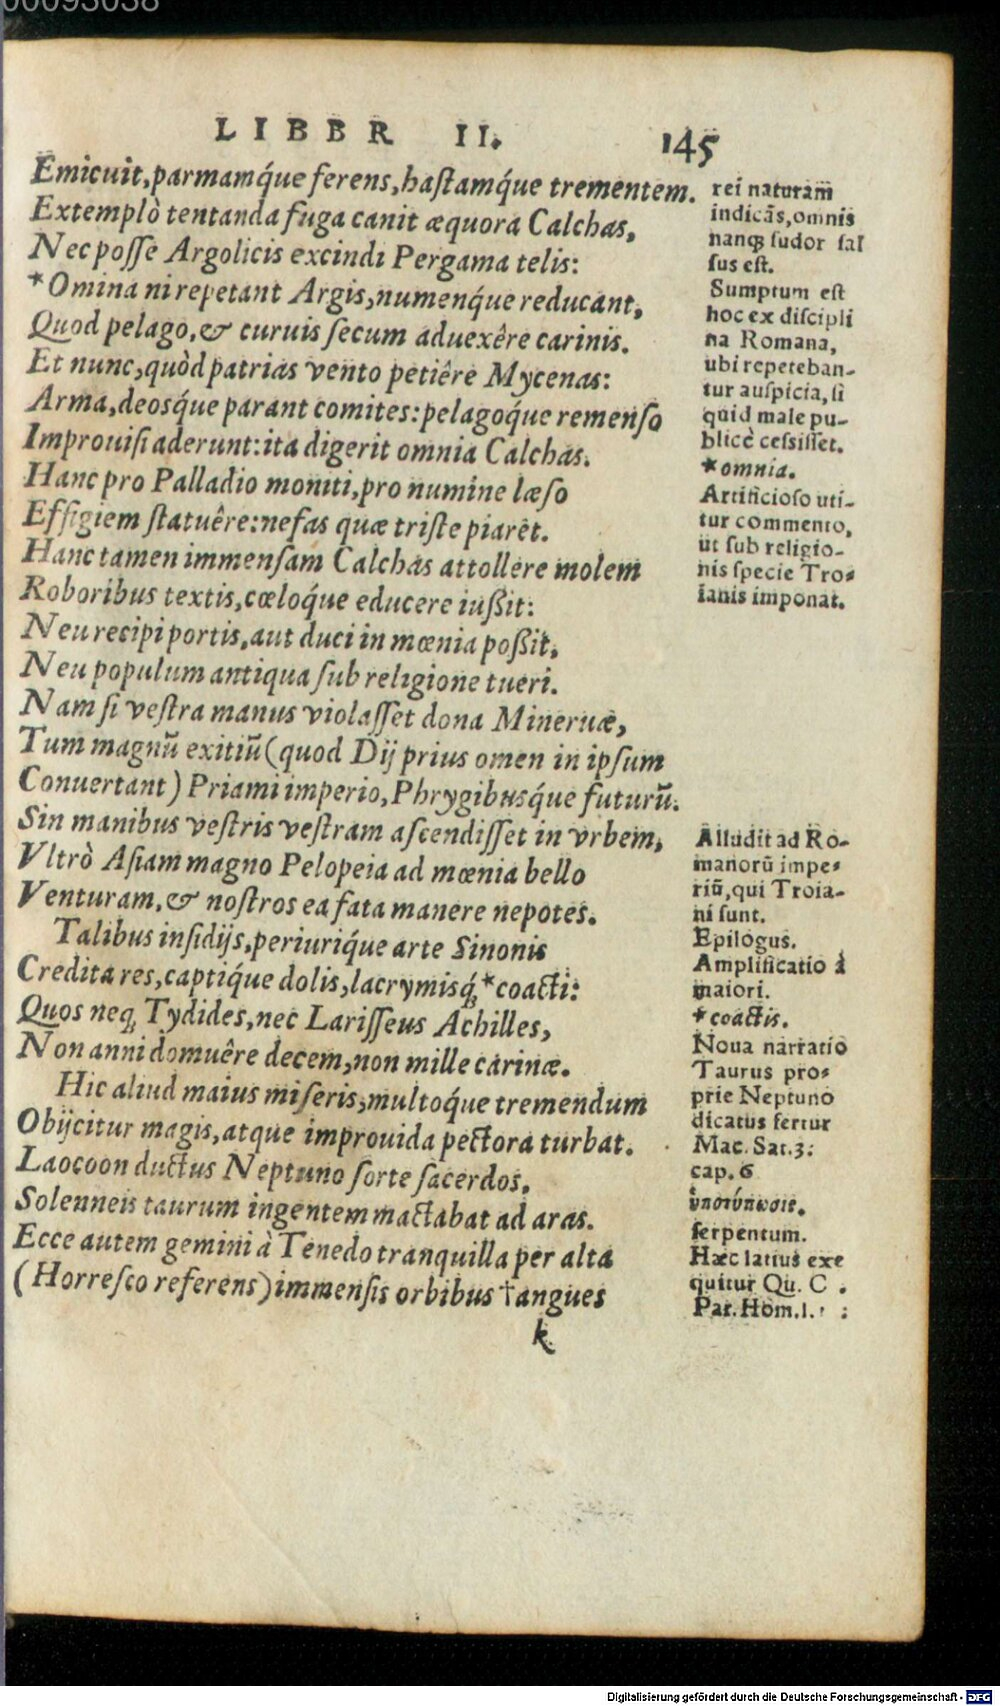 00093038
LIBBR II. 145
Emicuit,parmamq́ue ferens,haſtamq́ue trementem.
Extemplò tentanda fuga canit æquora Calchas,
Nec poſſe Argolicis excindi Pergama telis:
*Omina ni repetant Argis,numenq́ue reducant,
Quod pelago,& curuis ſecum aduexêre carinis.
Et nunc,quòd patrias vento petiêre Mycenas:
Arma,deosq́ue parant comites:pelagoq́ue remenſo
Improuiſi aderunt:ita digerit omnia Calchas.
Hanc pro Palladio moniti,pro numine læſo
Effigiem ſtatuêre:nefas quæ triſte piaret.
Hanc tamen immenſam Calchas attollere molem
Roboribus textis,cœloq́ue educere iußit:
Neu recipi portis,aut duci in mœnia poßit,
Neu populum antiqua ſub religione tueri.
Nam ſi veſtra manus violaſſet dona Mineruæ,
Tum magnũ exitiũ(quod Dij prius omen in ipſum
Conuertant) Priami imperio,Phrygibusq́ue futurũ.
Sin manibus veſtris veſtram aſcendiſſet in vrbem,
Vltrò Aſiam magno Pelopeia ad mœnia bello
Venturam,& noſtros ea fata manere nepotes.
Talibus inſidijs,periuriq́ue arte Sinonis
Credita res,captiq́ue dolis,lacrymisq́;*coacti:
Quos neq; Tydides,nec Lariſſeus Achilles,
Non anni domuêre decem,non mille carinæ.
Hic aliud maius miſeris,multoq́ue tremendum
Obijcitur magis,atque improuida pectora turbat.
Laocoon ductus Neptuno ſorte ſacerdos,
Solenneis taurum ingentem mactabat ad aras.
Ecce autem gemini à Tenedo tranquilla per alta
(Horreſco referens)immenſis orbibus †angues
k
rei naturam
indicãs,omnis
nanq; ſudor ſal
ſus eſt.
Sumptum eſt
hoc ex diſcipli
na Romana,
ubi repeteban-
tur auſpicia,ſi
quid male pu-
blicè ceſsiſſet.
*omnia.
Artificioſo uti-
tur commento,
ut ſub religio-
nis ſpecie Tro-
ianis imponat.
Alludit ad Ro-
manorũ impe-
riũ,qui Troia-
ni ſunt.
Epilogus.
Amplificatio à
maiori.
*coactis.
Noua narratio
Taurus pro-
prie Neptuno
dicatus fertur
Mac. Sat.3:
cap.6
ὑποτύπωσις.
ſerpentum.
Hæc latius exe
quitur Qu. C .
Par.Hom.l.
Digitalisierung gefördert durch die Deutsche Forschungsgemeinschaft - DFG